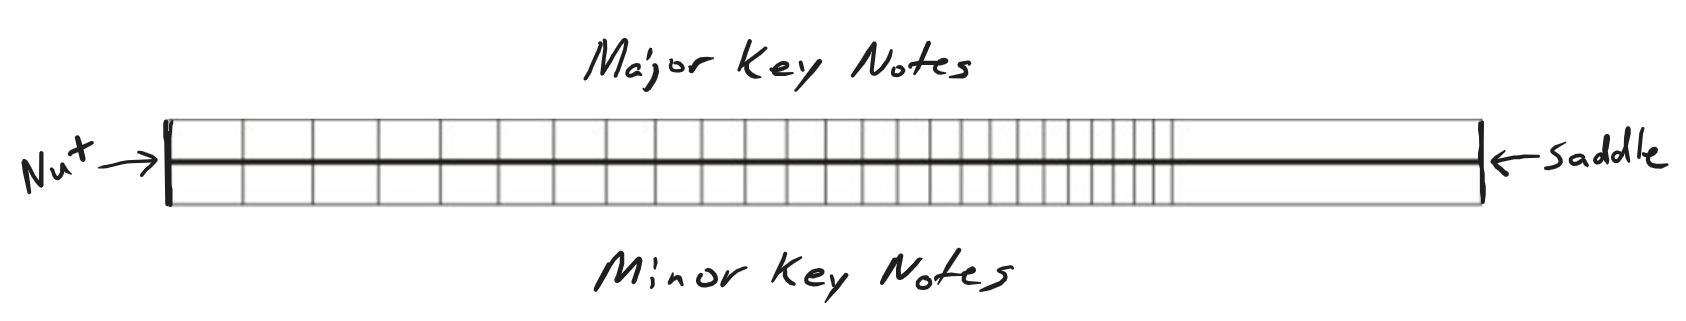 Major Key Notes
Nut
saddle
Minor Key Notes